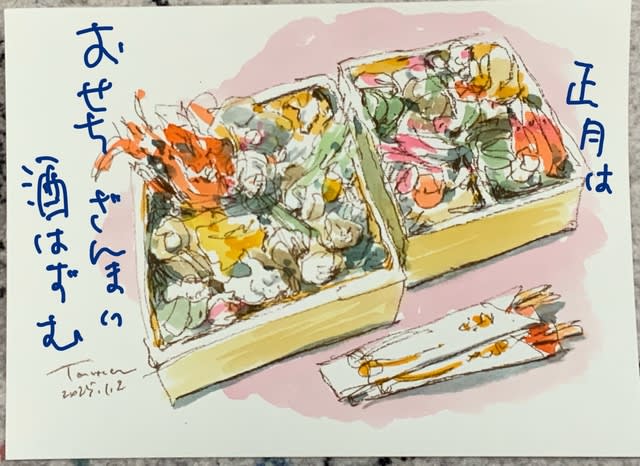 正月は
おせちざんまい
酒はずむ
2025.1.2